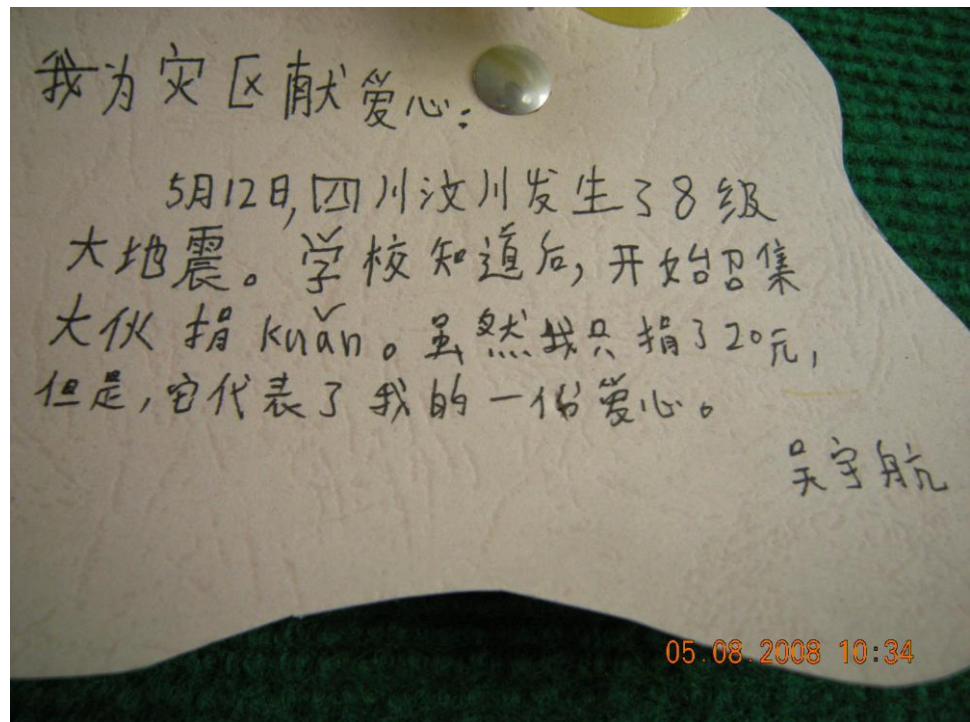 我为灾区献爱心:
5月12日,四川汶川发生了8级
大地震。学校知道后,开始召集
大伙捐kuǎn。虽然我只捐了20元,
但是,它代表了我的一份爱心。
吴宇航
05.08.2008 10:34